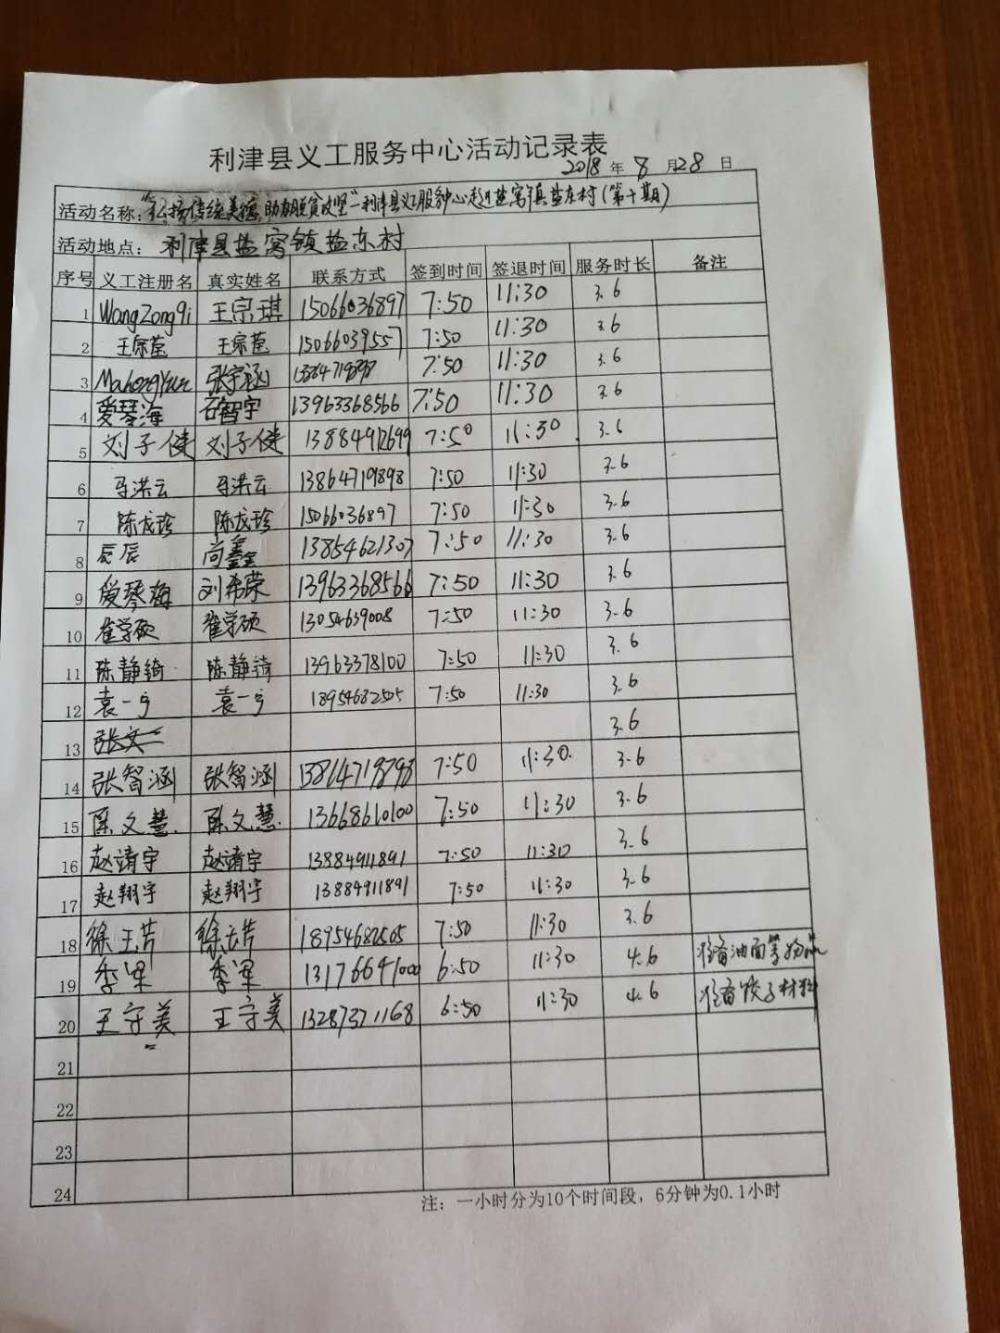 利津县义工服务中心活动记录表
2018 年 8 月 28 日
活动名称：“弘扬传统美德，助力脱贫攻坚”-利津县义工服务中心走进盐窝镇盐东村(第十期)
活动地点： 利津县盐窝镇盐东村
序号 义工注册名 真实姓名 联系方式 签到时间 签退时间 服务时长 备注
1 WangZongqi 王宗琪 15066036897 7:50 11:30 3.6
2 王宗莹 王宗莹 15066039557 7:50 11:30 3.6
3 Mahongyun 张宇涵 7:50 11:30 3.6
4 爱琴海 石智宇 13963368566 7:50 11:30 3.6
5 刘子健 刘子健 13884912699 7:50 11:30 3.6
6 马洪云 马洪云 13864719898 7:50 11:30 3.6
7 陈龙珍 陈龙珍 15066036897 7:50 11:30 3.6
8 辰辰 尚鑫 13854621307 7:50 11:30 3.6
9 爱琴海 刘希荣 13963368566 7:50 11:30 3.6
10 崔学硕 崔学硕 13054639008 7:50 11:30 3.6
11 陈静绮 陈静绮 13963378100 7:50 11:30 3.6
12 袁一宁 袁一宁 18954682505 7:50 11:30 3.6
13 3.6
14 张智涵 张智涵 13864719898 7:50 11:30. 3.6
15 陈文慧. 陈文慧. 13668610100 7:50 11:30 3.6
16 赵靖宇 赵靖宇 13884911891 7:50 11:30 3.6
17 赵翔宇 赵翔宇 13884911891 7:50 11:30 3.6
18 徐玉芳 徐玉芳 18954682505 7:50 11:30 3.6
19 季军 季军 13176641000 6:50 11:30 4.6 准备油面等物品
20 王守美 王守美 13287371168 6:50 11:30 4.6 准备饺子材料
21
22
23
24
注：一小时分为10个时间段，6分钟为0.1小时